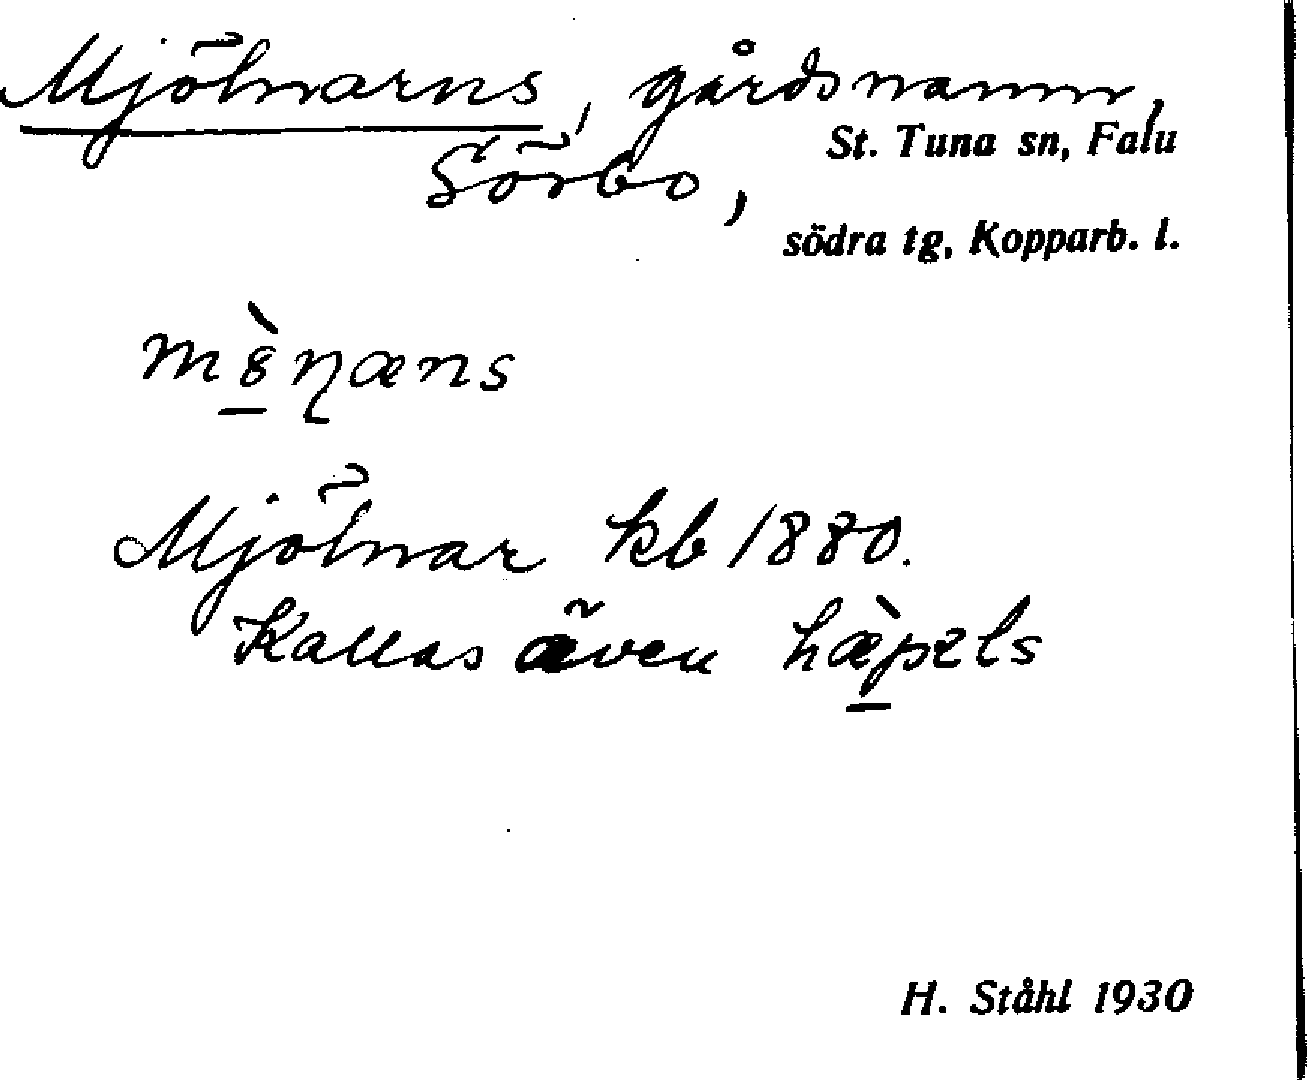 Mjölnarns, gårdsnamn,
St. Tuna sn, Falu
Sörbo,
södra tg, Kopparb. l.
Mjölnar kb 1880.
Kallas även
H. Ståhl 1930